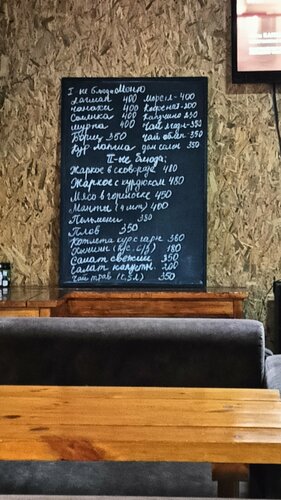 I-не блюдо Меню
Лагман 400 Морсл-400
Чанахи 400 Кофе нат-200
Солянка 400 Капучино 250
Шурпа 400 Чай ягодн-350
Борщ 350 Чай облеп 350
Кур лапша дом 350
II-не блюда:
Жаркое в сковороде 480
Жаркое с курдюком 480
Мясо в горшочке 450
Манты (4 шт) 400
Пельмени 350
Плов 350
Котлета кур с гарн 360
Хычины (к/с, с/з) 180
Салат свежий 350
Салат капустн. 200
Чай трав (с.з.л) 350